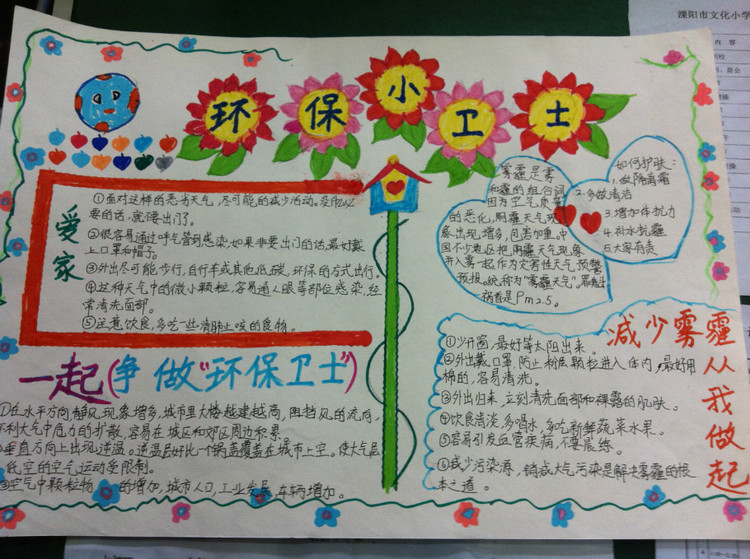 环保小卫士
溧阳市文化小学
内容
爱家
①面对这样的恶劣天气,尽可能的减少活动。没什么必
要的话,就不要出门了。
②很容易通过呼气管到感染,如果非要出门的话,最好戴
上口罩和帽子。
③外出尽可能步行,自行车或其他低碳,环保的方式出行。
④这种天气中的微小颗粒,容易通人眼等部位感染,经
常清洗面部。
⑤注意饮食,多吃一些清肺止咳的食物。
雾霾是雾
和霾的组合词
因为空气质量
的恶化,阴霾天气现
象出现增多,危害加重,中
国不少地区把阴霾天气现象
并入雾一起作为灾害性天气预警
预报。统称为“雾霾天气”。
祸首是Pm2.5。
如何护肤:
1.做隔离霜
2.多做清洁
3.增加体抗力
4.补水抗霾
5.大家有责
一起(争做“环保卫士”)
①在水平方向静风现象增多,城市里大楼越建越高,阻挡风的流向,
不利大气中危力的扩散,容易在城区和郊区周边积累。
垂直方向上出现逆温。逆温层好比一个锅盖覆盖在城市上空。使大气层
低空的空气运动受限制。
③空气中颗粒物的增加,城市人口,工业发展,车辆增加。
减少雾霾
从我做起
①少开窗,最好等太阳出来。
②外出戴口罩,防止粉尘颗粒进入体内,最好用
棉的,容易清洗。
③外出归来,立刻清洗面部和裸露的肌肤。
④饮食清淡,多喝水,多吃新鲜蔬菜水果。
⑤容易引发血管疾病,不要晨练。
⑥减少污染源,销减大气污染是解决雾霾的根
本之道。